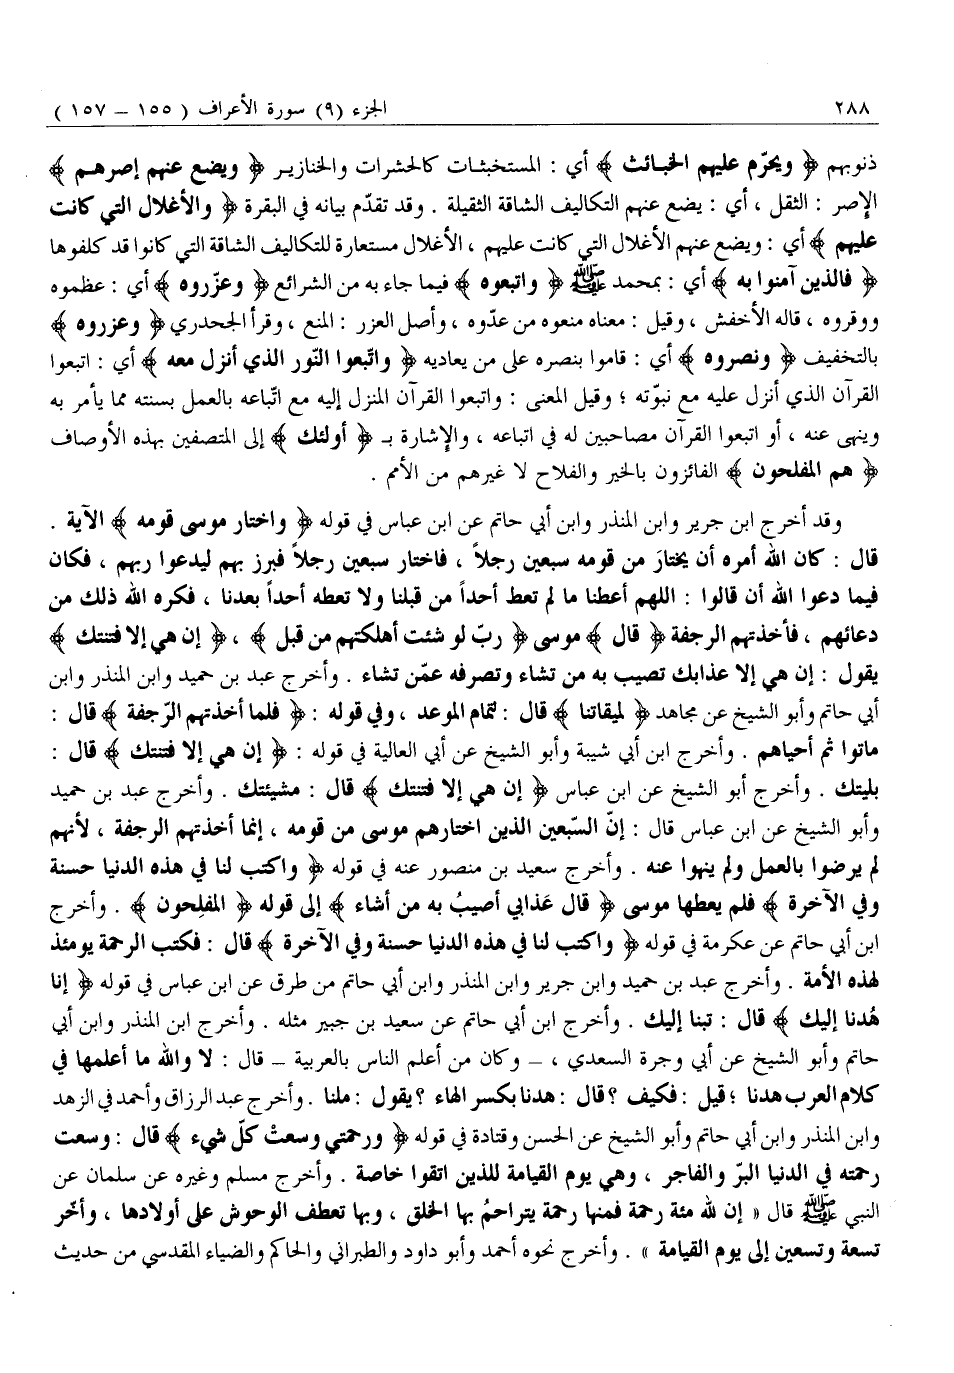 ٢٨٨ الجزء (٩) سورة الأعراف ( ١٥٥ – ١٥٧ )
ذنوبهم ﴿ ويحرّم عليهم الخبائث ﴾ أي : المستخبثات كالحشرات والخنازير ﴿ ويضع عنهم إصرهم ﴾
الإصر : الثقل ، أي : يضع عنهم التكاليف الشاقة الثقيلة . وقد تقدّم بيانه في البقرة ﴿ والأغلال التي كانت
عليهم ﴾ أي : ويضع عنهم الأغلال التي كانت عليهم ، الأغلال مستعارة للتكاليف الشاقة التي كانوا قد كلفوها
﴿ فالذين آمنوا به ﴾ أي : بمحمد ﷺ ﴿ واتبعوه ﴾ فيما جاء به من الشرائع ﴿ وعزّروه ﴾ أي : عظموه
ووقروه ، قاله الأخفش ، وقيل : معناه منعوه من عدّوه ، وأصل العزر : المنع ، وقرأ الجحدري ﴿ وعزروه ﴾
بالتخفيف ﴿ ونصروه ﴾ أي : قاموا بنصره على من يعاديه ﴿ واتّبعوا النّور الذي أنزل معه ﴾ أي : اتبعوا
القرآن الذي أنزل عليه مع نبوّته ؛ وقيل المعنى : واتبعوا القرآن المنزل إليه مع اتّباعه بالعمل بسنته مما يأمر به
وينهى عنه ، أو اتبعوا القرآن مصاحبين له في اتباعه ، والإشارة بـ ﴿ أولئك ﴾ إلى المتصفين بهذه الأوصاف
﴿ هم المفلحون ﴾ الفائزون بالخير والفلاح لا غيرهم من الأمم .
وقد أخرج ابن جرير وابن المنذر وابن أبي حاتم عن ابن عباس في قوله ﴿ واختار موسى قومه ﴾ الآية .
قال : كان الله أمره أن يختارَ من قومه سبعين رجلاً ، فاختار سبعين رجلاً فبرز بهم ليدعوا ربهم ، فكان
فيما دعوا الله أن قالوا : اللهم أعطنا ما لم تعط أحداً من قبلنا ولا تعطه أحداً بعدنا ، فكره الله ذلك من
دعائهم ، فأخذتهم الرجفة ﴿ قال ﴾ موسى ﴿ ربّ لو شئت أهلكتهم من قبل ﴾ ، ﴿ إن هي إلا فتنتك ﴾
يقول : إن هي إلا عذابك تصيب به من تشاء وتصرفه عمّن تشاء . وأخرج عبد بن حميد وابن المنذر وابن
أبي حاتم وأبو الشيخ عن مجاهد ﴿ لميقاتنا ﴾ قال : لتمام الموعد ، وفي قوله : ﴿ فلما أخذتهم الرّجفة ﴾ قال :
ماتوا ثم أحياهم . وأخرج ابن أبي شيبة وأبو الشيخ عن أبي العالية في قوله : ﴿ إن هي إلا فتنتك ﴾ قال :
بليتك . وأخرج أبو الشيخ عن ابن عباس ﴿ إن هي إلا فتنتك ﴾ قال : مشيئتك . وأخرج عبد بن حميد
وأبو الشيخ عن ابن عباس قال : إنّ السّبعين الذين اختارهم موسى من قومه ، إنما أخذتهم الرجفة ، لأنهم
لم يرضوا بالعمل ولم ينهوا عنه . وأخرج سعيد بن منصور عنه في قوله ﴿ واكتب لنا في هذه الدنيا حسنة
وفي الآخرة ﴾ فلم يعطها موسى ﴿ قال عَذابي أصيبُ به من أشاء ﴾ إلى قوله ﴿ المفلِحون ﴾ . وأخرج
ابن أبي حاتم عن عكرمة في قوله ﴿ واكتب لنا في هذه الدنيا حسنة وفي الآخرة ﴾ قال : فكتب الرحمة يومئذ
لهذه الأمة . وأخرج عبد بن حميد وابن جرير وابن المنذر وابن أبي حاتم من طرق عن ابن عباس في قوله ﴿ إنا
هُدنا إليك ﴾ قال : تبنا إليك . وأخرج ابن أبي حاتم عن سعيد بن جبير مثله . وأخرج ابن المنذر وابن أبي
حاتم وأبو الشيخ عن أبي وجرة السعدي ، – وكان من أعلم الناس بالعربية – قال : لا والله ما أعلمها في
كلام العرب هدنا ؛ قيل : فكيف ؟ قال : هدنا بكسر الهاء ؟ يقول : ملنا . وأخرج عبد الرزاق وأحمد في الزهد
وابن المنذر وابن أبي حاتم وأبو الشيخ عن الحسن وقتادة في قوله ﴿ ورحمتي وسعتْ كلّ شيء ﴾ قال : وسعت
رحمته في الدنيا البرّ والفاجر ، وهي يوم القيامة للذين اتقوا خاصة . وأخرج مسلم وغيره عن سلمان عن
النبي ﷺ قال « إن لله مئة رحمة فمنها رحمة يتراحمُ بها الخلق ، وبها تعطف الوحوش على أولادها ، وأخّر
تسعة وتسعين إلى يوم القيامة » . وأخرج نحوه أحمد وأبو داود والطبراني والحاكم والضياء المقدسي من حديث